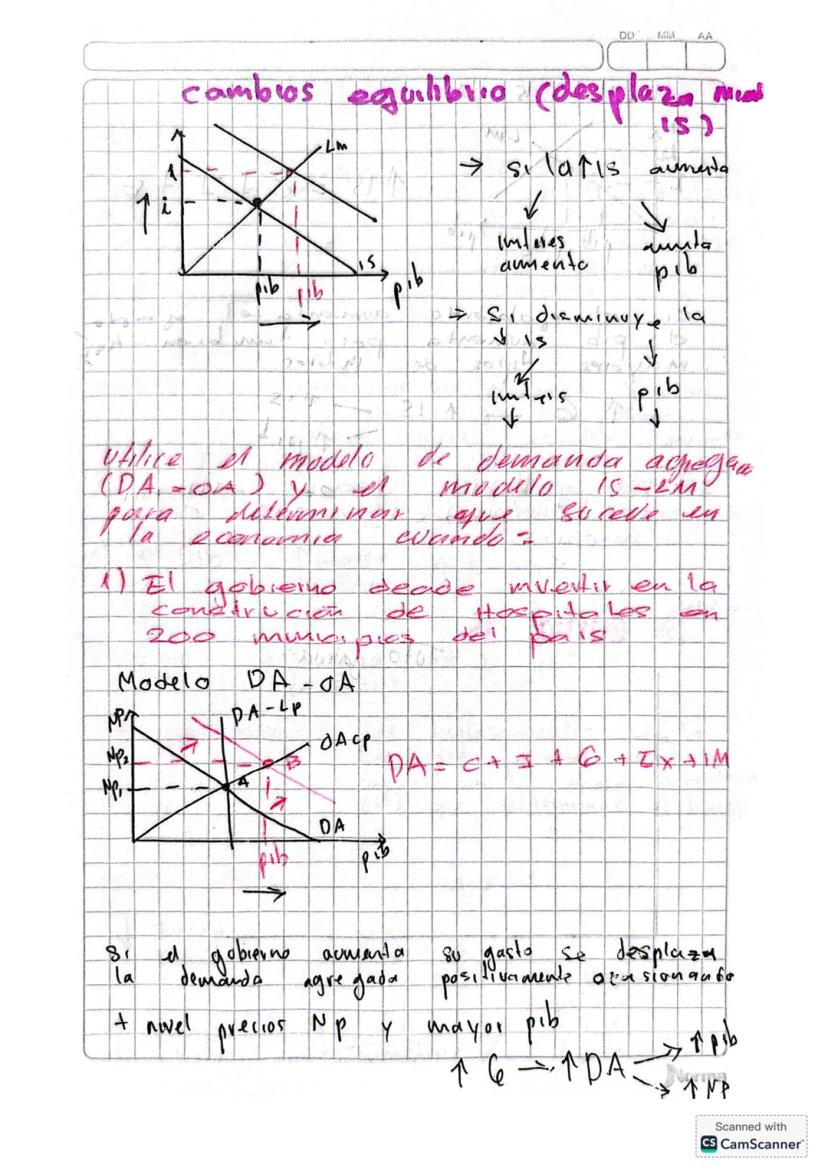 DD MM AA
cambios equilibrio (desplaza mient
IS)
Lm
1
↑ i
IS
pib pib
pib
→
→ si la ↑ IS aumenta
interes
aumento
aumta
pib
→ Si disminuye la
↓ IS
interis
↓
pib
↓
utilice el modelo de demanda agregaa
(DA - OA) y el modelo IS-LM
para determinar que sucede en
la economia cuando =
1) El gobierno decide invertir en la
construcción de Hospitales en
200 municipios del pais
Modelo DA-OA
NP
DA-LP
OAcp
NP2
B
NP1
A
DA
pib
pib
→
DA = C + I + G + Ex + IM
Si el gobierno aumenta su gasto se desplaza
la demanda agregada positivamente ocasionando
+ nivel precios NP y mayor pib
↑ G → ↑ DA → ↑ pib
→ ↑ NP
Norma
Scanned with
CS CamScanner